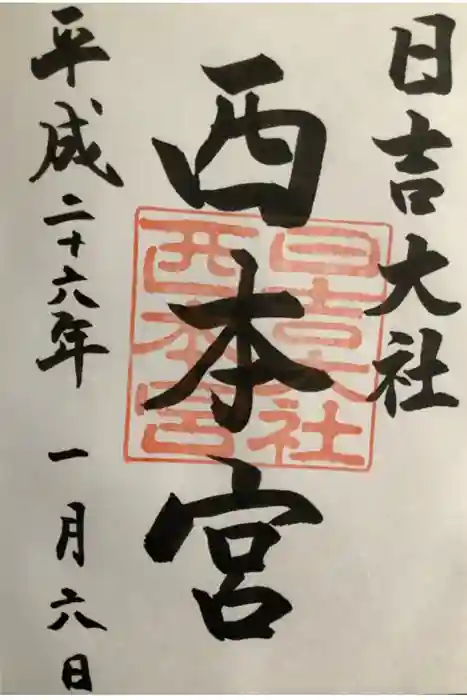 日吉大社
西本宮
日吉大社
西本宮
平成二十六年 一月六日